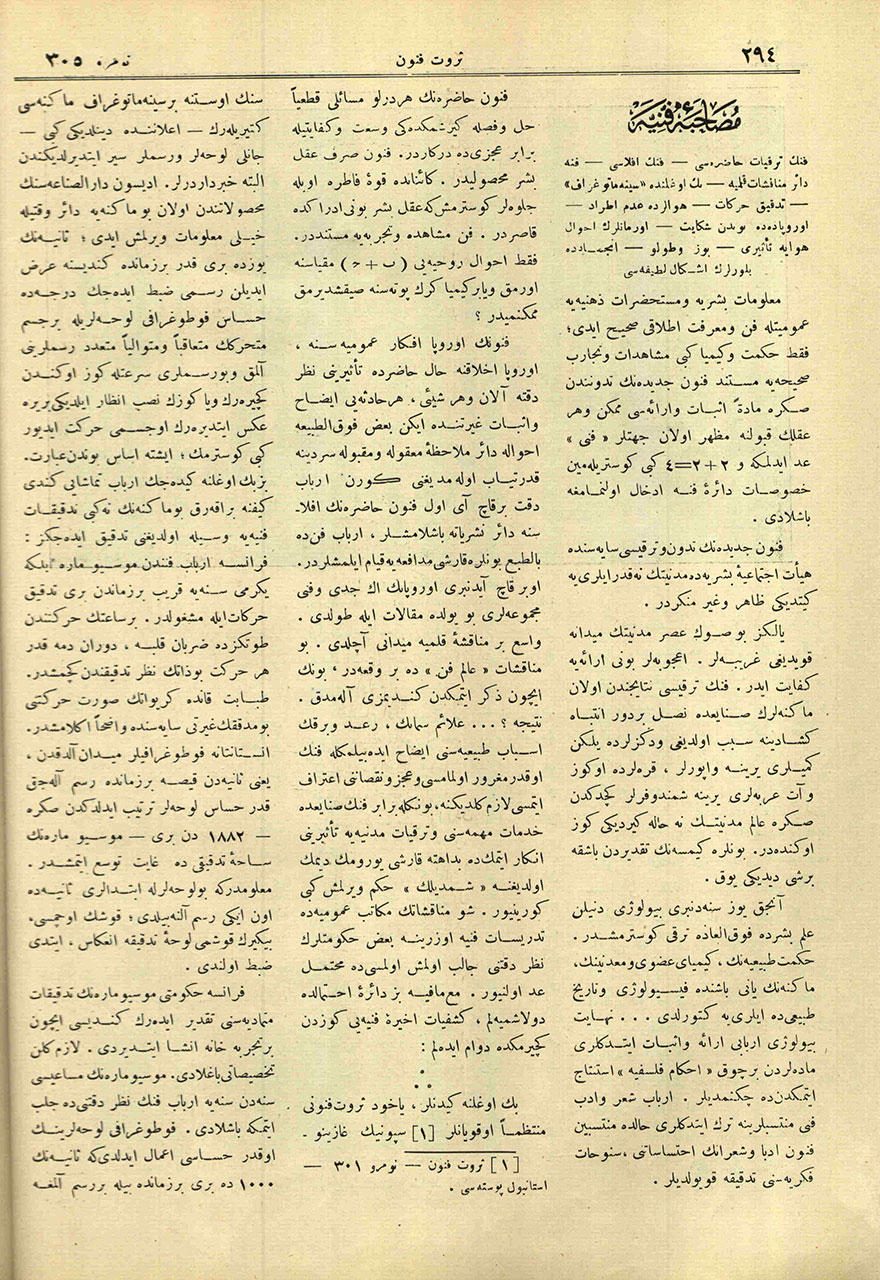 ٢٩٤
ثروت فنون
نومرو ٣٠٥
مصاحبۀ فنیه
فنك ترقیات حاضره‌سی — فنك افلاسی — فنه
دائر مناقشات قلمیه — بك اوغلنده «سینه‌ماتوغراف»
— تدقیق حرکات — هوالرده عدم اطراد —
اوروپاده‌ده بوندن شکایت — اورمانلرك احوال
هوایه تأثیری — بوز وطولو — انجمادده
بلورلرك اشکال لطیفه‌سی
معلومات بشریه و مستحضرات ذهنیه‌یه
عمومیتله فن ومعرفت اطلاقی صحیح ایدی؛
فقط حکمت وکیمیا کبی مشاهدات وتجارب
صحیحه‌یه مستند فنون جدیده‌نك تدونندن
صکره مادةً اثبات وارائه‌سی ممکن وهر
عقلك قبولنه مظهر اولان جهتلر «فنی»
عد ایدلمکه و ٢+٢=٤ کبی کوستریله‌مین
خصوصات دائرۀ فنه ادخال اولنمامغه
باشلادی.
فنون جدیده‌نك تدون وترقیسی سایه‌سنده
هیأت اجتماعیۀ بشریه‌ده مدنیتك نه‌قدر ایلری‌یه
کیتدیکی ظاهر وغیر منکردر.
یالکز بو صوك عصر مدنیتك میدانه
قویدیغی غریبه‌لر. اعجوبه‌لر بونی ارائه‌یه
کفایت ایدر. فنك ترقیسی نتایجندن اولان
ماکنه‌لرك صنایعده نصل بردور انتباه
کشادینه سبب اولدیغی ودکزلرده یلکن
کمیلری یرینه واپورلر، قره‌لرده اوکوز
وآت عربه‌لری یرینه شمندوفرلر کچدکدن
صکره عالم مدنیتك نه حاله کیردیکی کوز
اوکنده‌در. بونلره کیمسه‌نك تقدیردن باشقه
برشی دیدیکی یوق.
آنجق یوز سنه‌دنبری بیولوژی دنیلن
علم بشرده فوق‌العاده ترقی کوسترمشدر.
حکمت طبیعیه‌نك، کیمیای عضوی ومعدنینك،
ماکنه‌نك یانی باشنده فیسیولوژی وتاریخ
طبیعی‌ده ایلری‌یه کتورلدی... نهایت
بیولوژی اربابی ارائه واثبات ایتدکلری
ماده‌لردن برچوق «احکام فلسفیه» استنتاج
ایتمکدن‌ده چکنمدیلر. ارباب شعر وادب
فنی منتسبلرینه ترك ایتدکلری حالده منتسبین
فنون ادبا وشعرانك احتساساتی، سنوحات
فکریه‌سنی تدقیقه قویولدیلر.
فنون حاضره‌نك هردرلو مسائلی قطعیاً
حل وفصله کیرشمکده‌کی وسعت وکفایتیله
برابر عجزی‌ده درکاردر. فنون صرف عقل
بشر محصولیدر. کائناتده قوۀ فاطره اویله
جلوه‌لر کوسترمش‌که عقل بشر بونی ادراکده
قاصردر. فن مشاهده وتجربه‌یه مستنددر.
فقط احوال روحیه‌یی (ب + ح) مقیاسنه
اورمق ویا برکیمیا کرك پوته‌سنه صیقشدیرمق
ممکنمیدر؟
فنونك اوروپا افکار عمومیه‌سنه،
اوروپا اخلاقنه حال حاضرده تأثیرینی نظر
دقته آلان وهر شیئی، هرحادثه‌یی ایضاح
واثبات غیرتنده ایکن بعض فوق‌الطبیعه
احواله دائر ملاحظۀ معقوله ومقبوله سردینه
قدرتیاب اوله‌مدیغنی کورن ارباب
دقت برقاچ آی اول فنون حاضره‌نك افلا‌ـ
سنه دائر نشریاته باشلامشلر، ارباب فن‌ده
بالطبع بونلره قارشی مدافعه‌یه قیام ایلمشلردر.
اوبر قاچ آیدنبری اوروپانك اك جدی وفنی
مجموعه‌لری بو یولده مقالات ایله طولدی.
واسع بر مناقشۀ قلمیه میدانی آچلدی. بو
مناقشات «عالم فن» ده بر وقعه‌در؛ بونك
ایچون ذکر ایتمکدن کندیمزی آله‌مدق.
نتیجه؟... علائم سمانك، رعد وبرقك
اسباب طبیعیه‌سنی ایضاح ایده‌بیلمکله فنك
اوقدر مغرور اولمامسی وعجز ونقصاننی اعتراف
ایتمسی لازم کلدیکنه، بونکله برابر فنك صنایعده
خدمات مهمه‌سنی وترقیات مدنیه‌یه تأثیرینی
انکار ایتمك‌ده بداهته قارشی یورومك دیمك
اولدیغنه «شمدیلك» حکم ویرلمش کبی
کورینیور. شو مناقشاتك مکاتب عمومیه‌ده
تدریسات فنیه اوزرینه بعض حکومتلرك
نظر دقتنی جالب اولمش اولمسی‌ده محتمل
عد اولنیور. مع‌مافیه بز دائرۀ احتمالده
دولاشمیه‌لم، کشفیات اخیرۀ فنیه‌یی کوزدن
کچیرمکده دوام ایده‌لم:
بك اوغلنه کیدنلر، یاخود ثروت‌فنونی
منتظماً اوقویانلر [١] سپونیك غازینو‌ـ
[١] ثروت فنون — نومرو ٣٠١ —
استانبول پوسته‌سی.
سنك اوستنه برسینه‌ماتوغراف ماکنه‌سی
کتیریله‌رك — اعلاننده دینلدیکی کبی —
جانلی لوحه‌لر ورسملر سیر ایتدیرلدیکندن
البته خبرداردرلر. ادیسون دارالصناعه‌سنك
محصولاتندن اولان بوماکنه‌یه دائر وقتیله
خیلی معلومات ویرلمش ایدی؛ ثانیه‌نك
یوزده بری قدر برزمانده کندیسنه عرض
ایدیلن رسمی ضبط ایده‌جك درجه‌ده
حساس فوطوغرافی لوحه‌لریله برجسم
متحرکك متعاقباً ومتوالیاً متعدد رسملرینی
آلمق وبورسملری سرعتله کوز اوکندن
کچیره‌رك ویا کوزك نصب انظار ایلدیکی بریره
عکس ایتدیره‌رك اوجسمی حرکت ایدیور
کبی کوسترمك؛ ایشته اساس بوندن عبارت.
بزبك اوغلنه کیده‌جك ارباب تماشایی کندی
کیفنه براقه‌رق بوماکنه‌نك نه‌کبی تدقیقات
فنیه‌یه وسیله اولدیغنی تدقیق ایده‌جکز:
فرانسه ارباب فنندن موسیو ماره‌ی ایلکه
یکرمی سنه‌یه قریب برزماندن بری تدقیق
حرکات ایله مشغولدر. برساعتك حرکتندن
طوتکزده ضربان قلبه، دوران دمه قدر
هر حرکت بوذاتك نظر تدقیقندن کچمشدر.
طبابت قانده کریواتك صورت حرکتنی
بومدققك غیرتی سایه‌سنده واضحاً اکلامشدر.
انستانتانه فوطوغرافیلر میدان آلدقدن،
یعنی ثانیه‌دن قیصه برزمانده رسم آله‌جق
قدر حساس لوحه‌لر ترتیب ایدلدکدن صکره
— ١٨٨٢ دن بری — موسیو ماره‌نك
ساحۀ تدقیقی ده غایت توسع ایتمشدر.
معلومدرکه بولوحه‌لرله ابتدالری ثانیه‌ده
اون ایکی رسم آلنه‌بیلدی؛ قوشك اوچمسی،
بیکیرك قوشمسی لوحۀ تدقیقه انعکاس، ایتدی
ضبط اولندی.
فرانسه حکومتی موسیو ماره‌نك تدقیقات
متمادیه‌سنی تقدیر ایده‌رك کندیسی ایچون
برتجربه خانه انشا ایتدیردی. لازم‌کلن
تخصیصاتی باغلادی. موسیو ماره‌نك مساعیسی
سنه‌دن سنه‌یه ارباب فنك نظر دقتنی‌ده جلب
ایتمکه باشلادی. فوطوغرافی لوحه‌لرینك
اوقدر حساسی اعمال ایدلدی‌که ثانیه‌نك
١٠٠٠ ده بری برزمانده بیله بررسم آلمغه